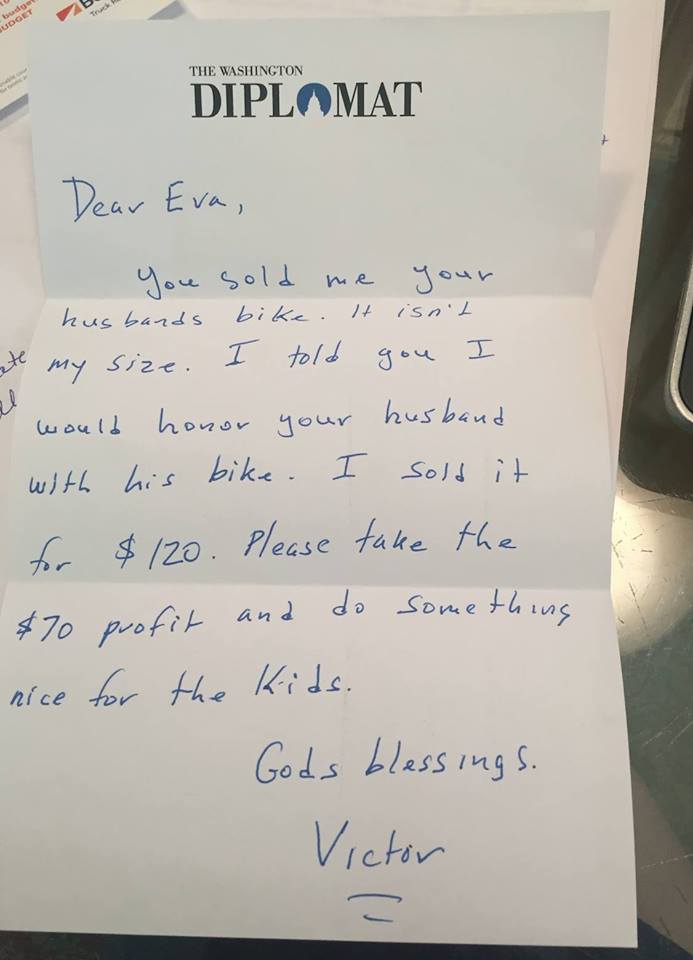 budget
BUDGET
Truck R
THE WASHINGTON
DIPLOMAT
Dear Eva,
You sold me your
husbands bike. It isn't
my size. I told you I
would honor your husband
with his bike. I sold it
for $120. Please take the
$70 profit and do something
nice for the Kids.
Gods blessings.
Victor